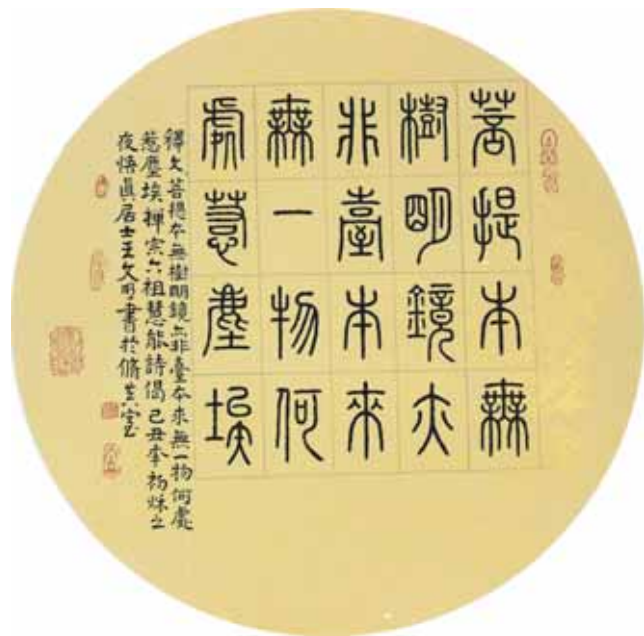 菩提本無
樹明鏡亦
非臺本來
無一物何
處惹塵埃
釋文菩提本無樹明鏡亦非臺本來無一物何處
惹塵埃禪宗六祖慧能詩偈己丑年初秋之
夜悟真居士王文明書於脩真室